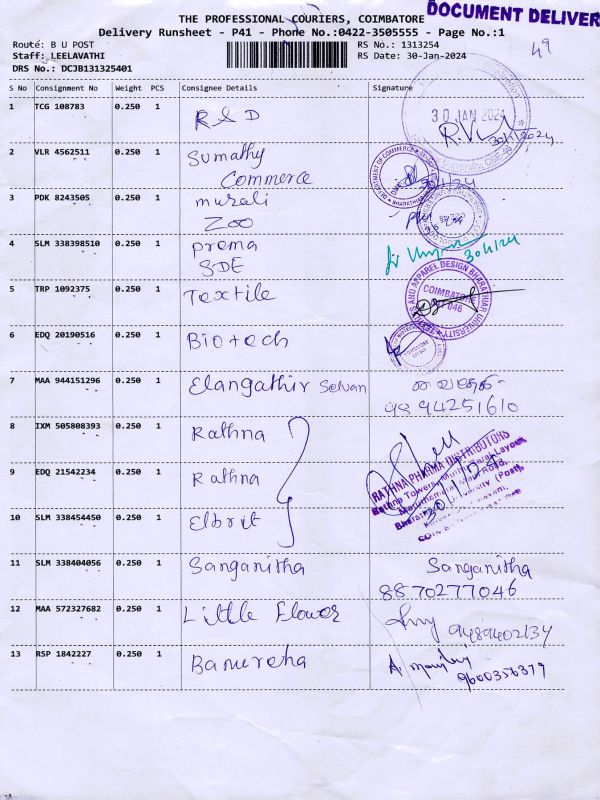 DOCUMENT DELIVER
THE PROFESSIONAL COURIERS, COIMBATORE
Delivery Runsheet - P41 - Phone No.:0422-3505555 - Page No.:1
Route: B U POST
RS No.: 1313254
49
Staff: LEELAVATHI
RS Date: 30-Jan-2024
DRS No.: DCJB131325401
S No Consignment No Weight PCS Consignee Details Signature
1 TCG 108783 0.250 1 R & D
30 JAN 2024
30/1/2024
2 VLR 4562511 0.250 1 Sumathy
Commerce
30/1/24
3 PDK 8243505 0.250 1 murali
Zoo
4 SLM 338398510 0.250 1 prema
SDE
30/1/24
5 TRP 1092375 0.250 1 Textile
TEXTILES AND APPAREL DESIGN BHARATHIAR UNIVERSITY
COIMBATORE
641 046
6 EDQ 20190516 0.250 1 Biotech
7 MAA 944151296 0.250 1 Elangathir Selvan
9894251610
8 IXM 505808393 0.250 1 Rathna
RATHNA PHARMA DISTRIBUTORS
Rathna Towers,
30/1/24
9 EDQ 21542234 0.250 1 Rathna
10 SLM 338454450 0.250 1 Elbrit
11 SLM 338404056 0.250 1 Sanganitha Sanganitha
8870277046
12 MAA 572327682 0.250 1 Little Flower
9489402134
13 RSP 1842227 0.250 1 Banureha
9600356379